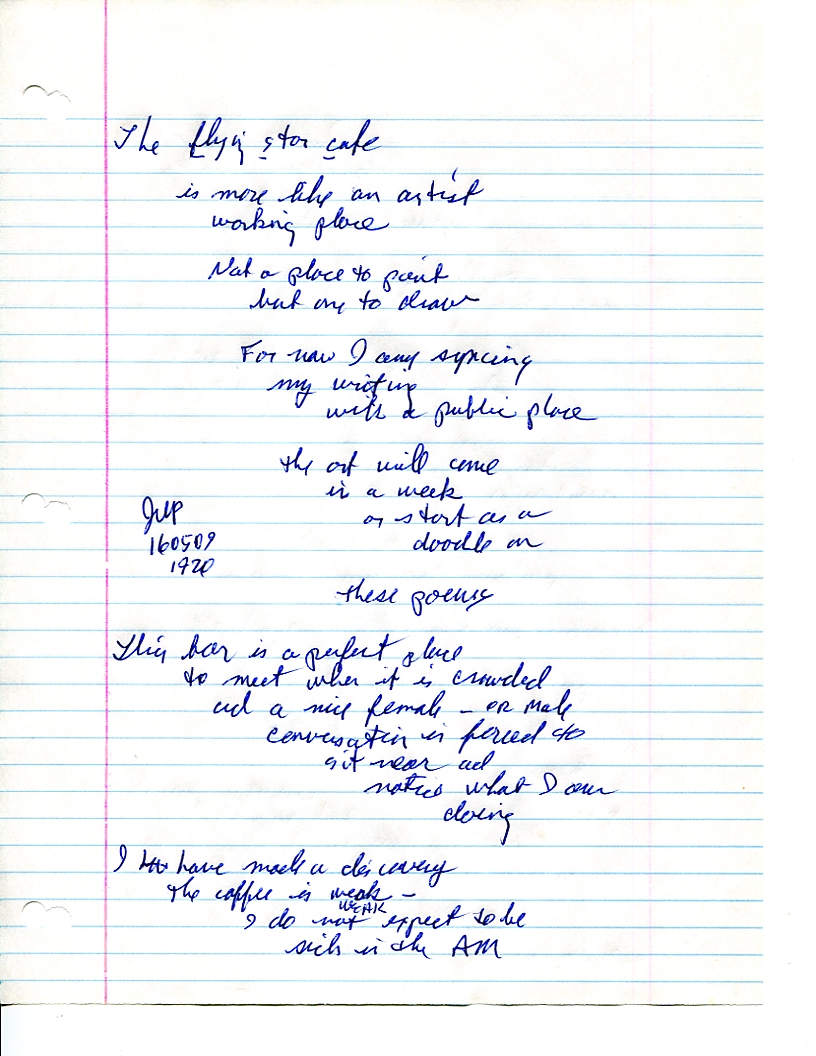 The flying star cafe
is more like an artist
working place
Not a place to paint
but one to draw
For now I am syncing
my writing
with a public place
the art will come
in a week
or start as a
doodle on
these poems
JMP
160509
1920
This bar is a perfect place
to meet when it is crowded
and a nice female – OR Male
conversation is forced to
sit near and
notice what I am
doing
I have made a discovery
the coffee is weak –
WEAK
I do not expect to be
sick in the AM